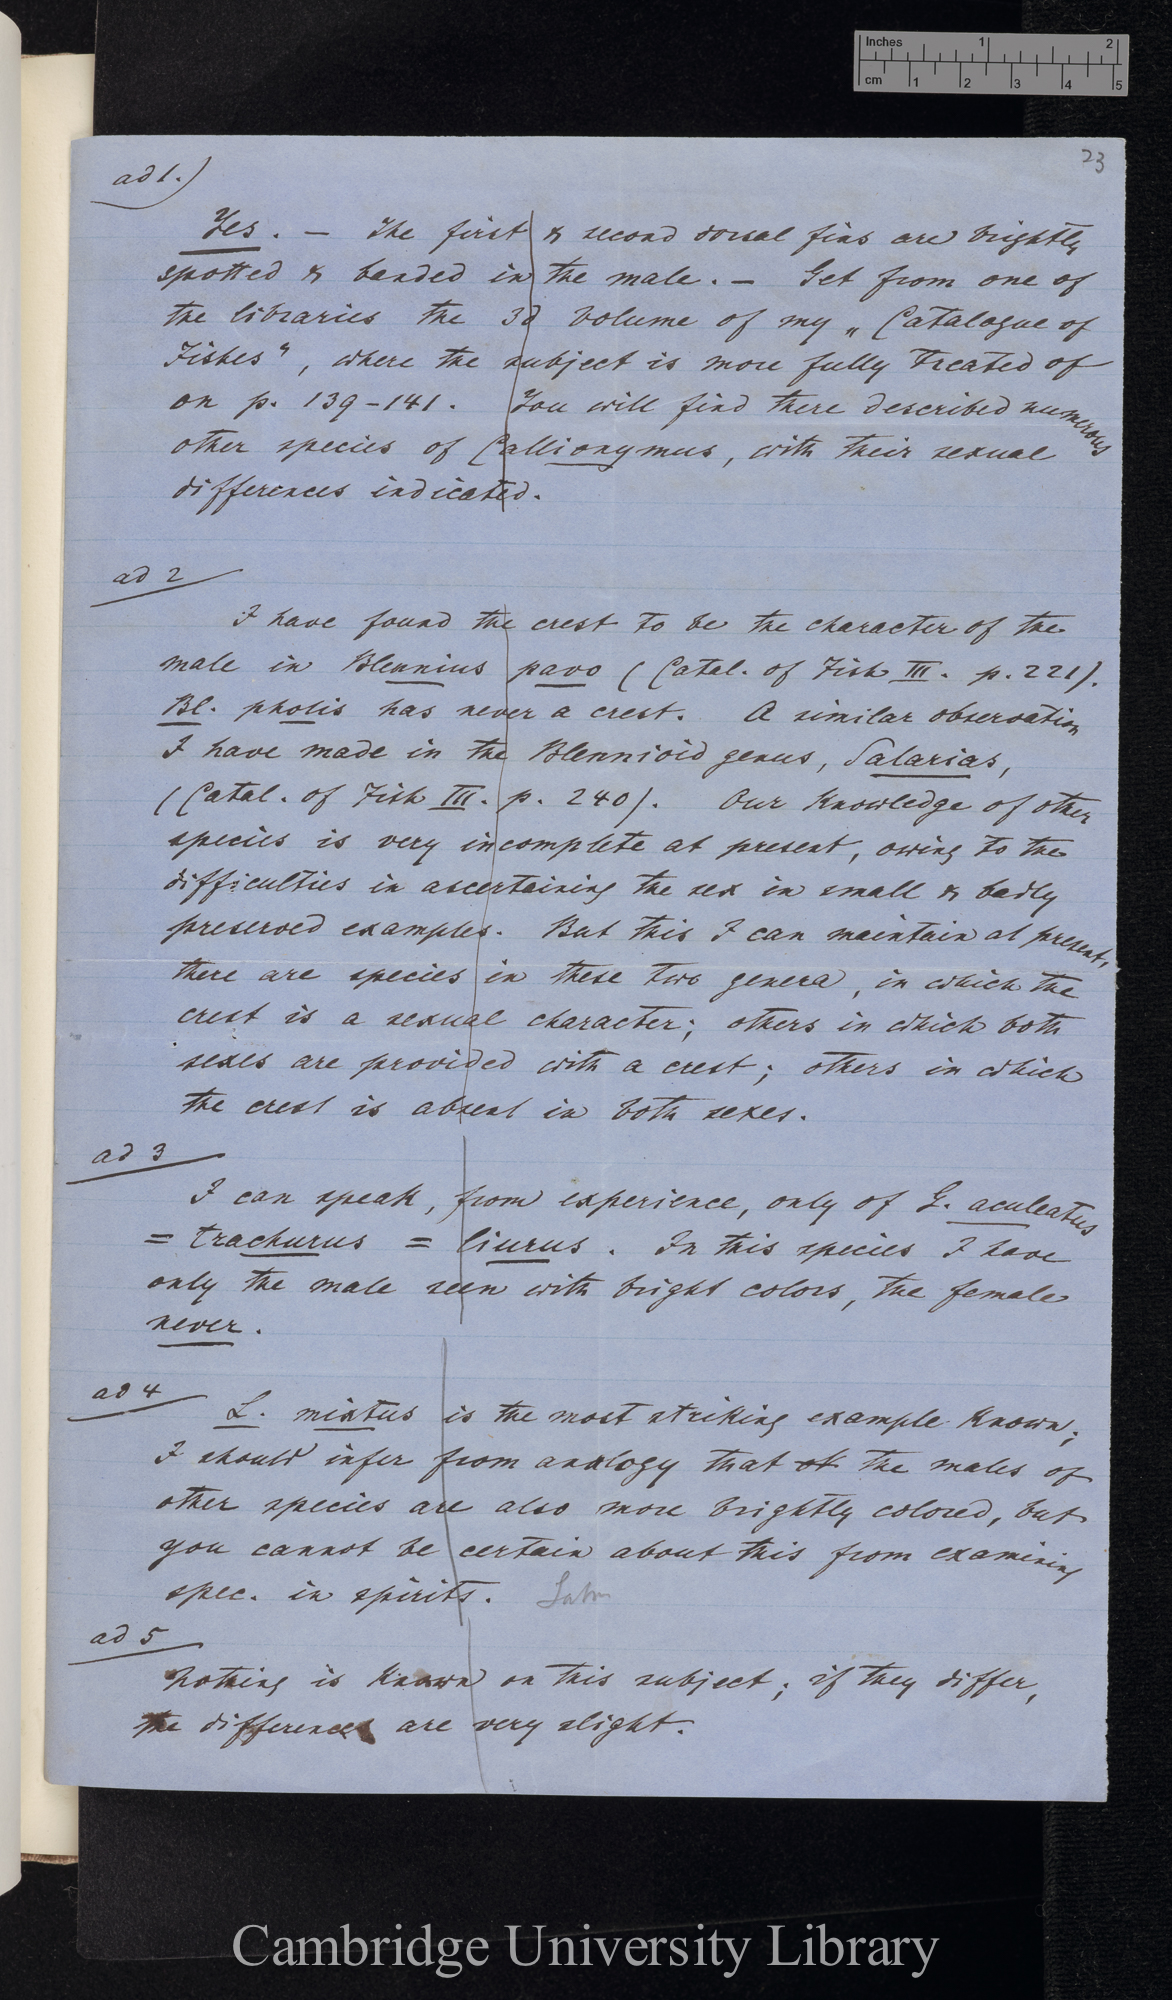 Inches 1 2
cm 1 2 3 4 5
23
ad 1.)
Yes. — The first & second dorsal fins are brightly
spotted & banded in the male. — Get from one of
the libraries the 3d volume of my „Catalogue of
Fishes“, where the subject is more fully treated of
on p. 139-141. You will find there described numerous
other species of Callionymus, with their sexual
differences indicated.
ad 2
I have found the crest to be the character of the
male in Blennius pavo (Catal. of Fish III. p. 221).
Bl. pholis has never a crest. A similar observation
I have made in the Blennioid genus, Salarias,
(Catal. of Fish III. p. 240). Our knowledge of other
species is very incomplete at present, owing to the
difficulties in ascertaining the sex in small & badly
preserved examples. But this I can maintain at present,
there are species in these two genera, in which the
crest is a sexual character; others in which both
sexes are provided with a crest; others in which
the crest is absent in both sexes.
ad 3
I can speak, from experience, only of G. aculeatus
= trachurus = liurus. In this species I have
only the male seen with bright colors, the female
never.
ad 4
L. mixtus is the most striking example known;
I should infer from analogy that the males of
other species are also more brightly colored, but
you cannot be certain about this from examining
spec. in spirits.
ad 5
Nothing is known on this subject; if they differ,
the differences are very slight.
Cambridge University Library